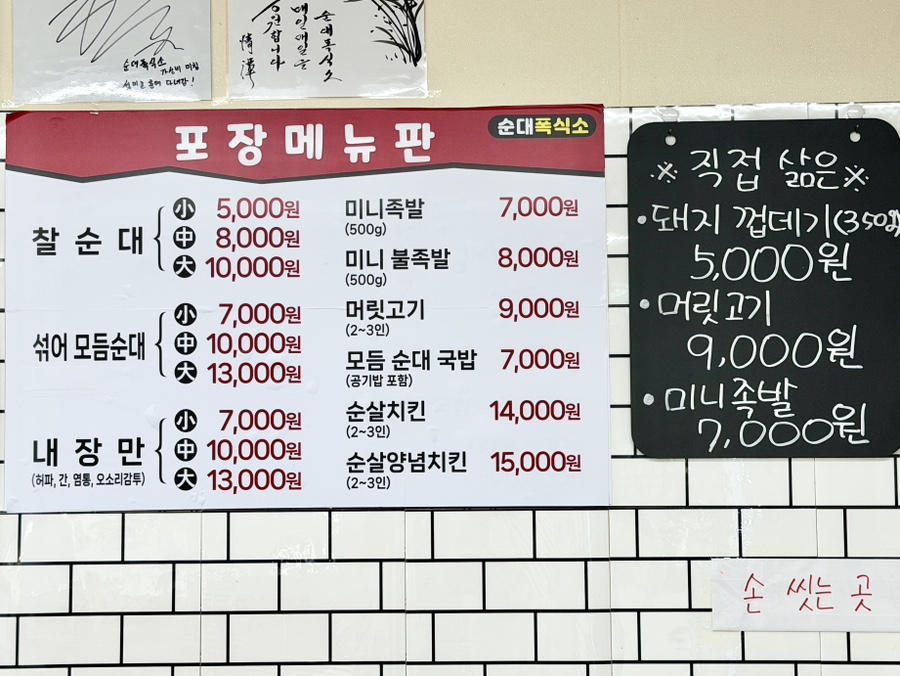 순대폭식소
순대폭식소
매일매일을
응원합니다
포장메뉴판
순대폭식소
찰순대
小 5,000원
中 8,000원
大 10,000원
섞어 모듬순대
小 7,000원
中 10,000원
大 13,000원
내장만
(허파, 간, 염통, 오소리감투)
小 7,000원
中 10,000원
大 13,000원
미니족발 7,000원
(500g)
미니 불족발 8,000원
(500g)
머릿고기 9,000원
(2~3인)
모듬 순대 국밥 7,000원
(공기밥 포함)
순살치킨 14,000원
(2~3인)
순살양념치킨 15,000원
(2~3인)
※ 직접 삶은 ※
• 돼지 껍데기(350g)
5,000원
• 머릿고기
9,000원
• 미니족발
7,000원
손 씻는 곳